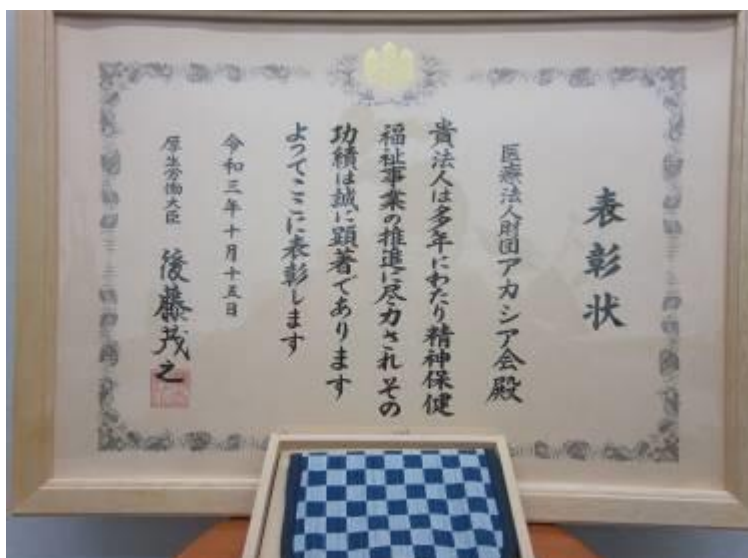 表彰状
医療法人財団アカシア会殿
貴法人は多年にわたり精神保健
福祉事業の推進に尽力されその
功績は誠に顕著であります
よってここに表彰します
令和三年十月十五日
厚生労働大臣 後藤茂之